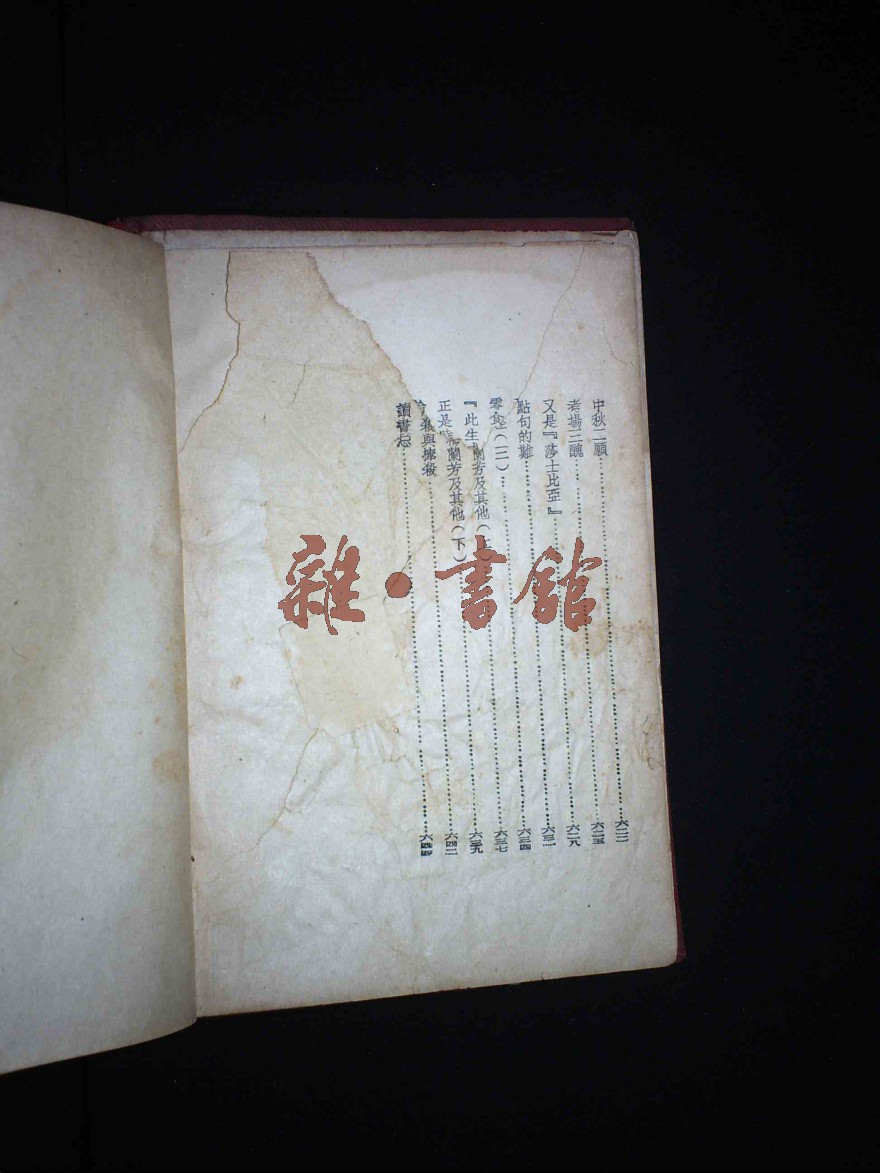 中秋二願……六二二
考場三醜……六二五
又是『莎士比亞』……六二八
點句的難……六三一
……六三四
『此生 蘭芳及其他(上)……六三七
正是 蘭芳及其他(下)……六三九
與捧殺……六四二
讀書忌……六四四
雜·書館